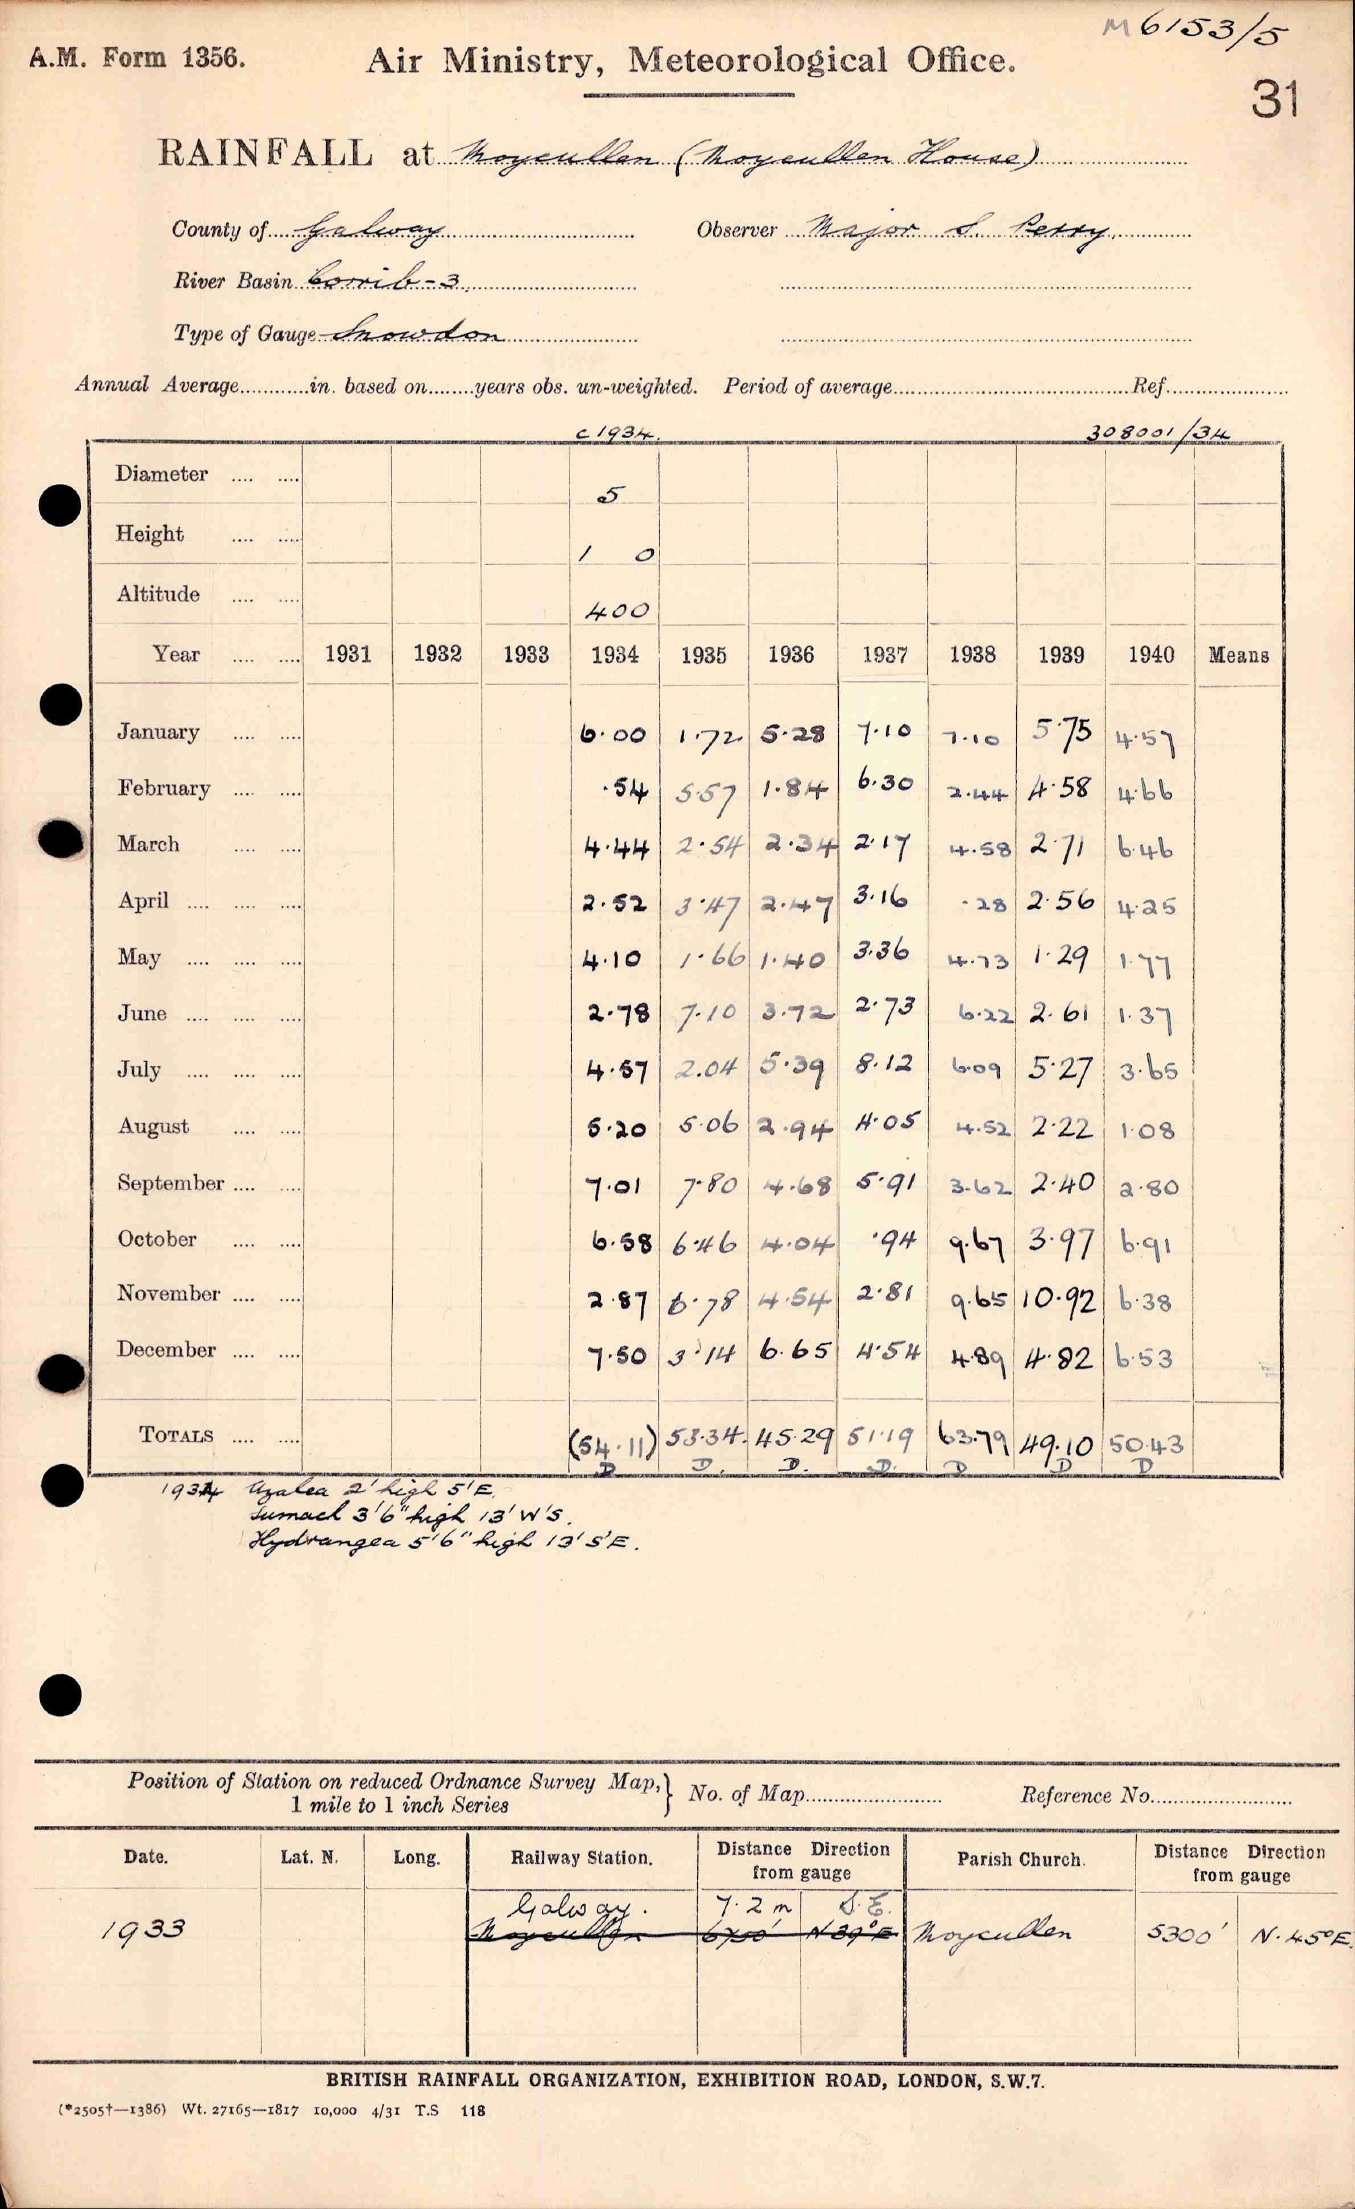 M6153/5
A.M. Form 1356. Air Ministry, Meteorological Office.
31
RAINFALL at Moycullen (Moycullen House)
County of Galway Observer Major S. Perry.
River Basin Corrib-3.
Type of Gauge Snowdon
Annual Average............in. based on........years obs. un-weighted. Period of average........................................Ref.....................
c1934. 308001/34
Diameter .... .... 5
Height .... .... 1 0
Altitude .... .... 400
Year .... .... 1931 1932 1933 1934 1935 1936 1937 1938 1939 1940 Means
January .... .... 6.00 1.72 5.28 7.10 7.10 5.75 4.57
February .... .... .54 5.57 1.84 6.30 2.44 4.58 4.66
March .... .... 4.44 2.54 2.34 2.17 4.58 2.71 6.46
April .... .... .... 2.52 3.47 2.47 3.16 .28 2.56 4.25
May .... .... .... 4.10 1.66 1.40 3.36 4.73 1.29 1.77
June .... .... .... 2.78 7.10 3.72 2.73 6.22 2.61 1.37
July .... .... .... 4.57 2.04 5.39 8.12 6.09 5.27 3.65
August .... .... 5.20 5.06 2.94 4.05 4.52 2.22 1.08
September .... .... 7.01 7.80 4.68 5.91 3.62 2.40 2.80
October .... .... 6.58 6.46 4.04 .94 9.67 3.97 6.91
November .... .... 2.87 6.78 4.54 2.81 9.65 10.92 6.38
December .... .... 7.50 3.14 6.65 4.54 4.89 4.82 6.53
TOTALS .... .... (54.11) 53.34. 45.29 51.19 63.79 49.10 50.43
D D. D. D. D D D
1934 Azalea 2' high 5'E.
Sumach 3'6" high 13' W'S.
Hydrangea 5'6" high 13' S'E.
Position of Station on reduced Ordnance Survey Map,} No. of Map........................ Reference No.........................
1 mile to 1 inch Series
Date. Lat. N. Long. Railway Station. Distance Direction from gauge Parish Church. Distance Direction from gauge
Galway. 7.2m S.E.
1933 Moycullen 6750' N 39° E Moycullen 5300' N. 45° E.
BRITISH RAINFALL ORGANIZATION, EXHIBITION ROAD, LONDON, S.W.7.
(*2505†—1386) Wt. 27165—1817 10,000 4/31 T.S 118